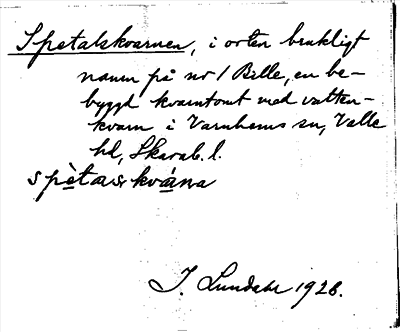 Spetalskvarnen, i orten brukligt
namn på nr 1 Bille, en be-
byggd kvarntomt med vatten-
kvarn i Varnhems sn, Valle
hd, Skarab. l.
spètaskvána
J. Lundahl 1926.